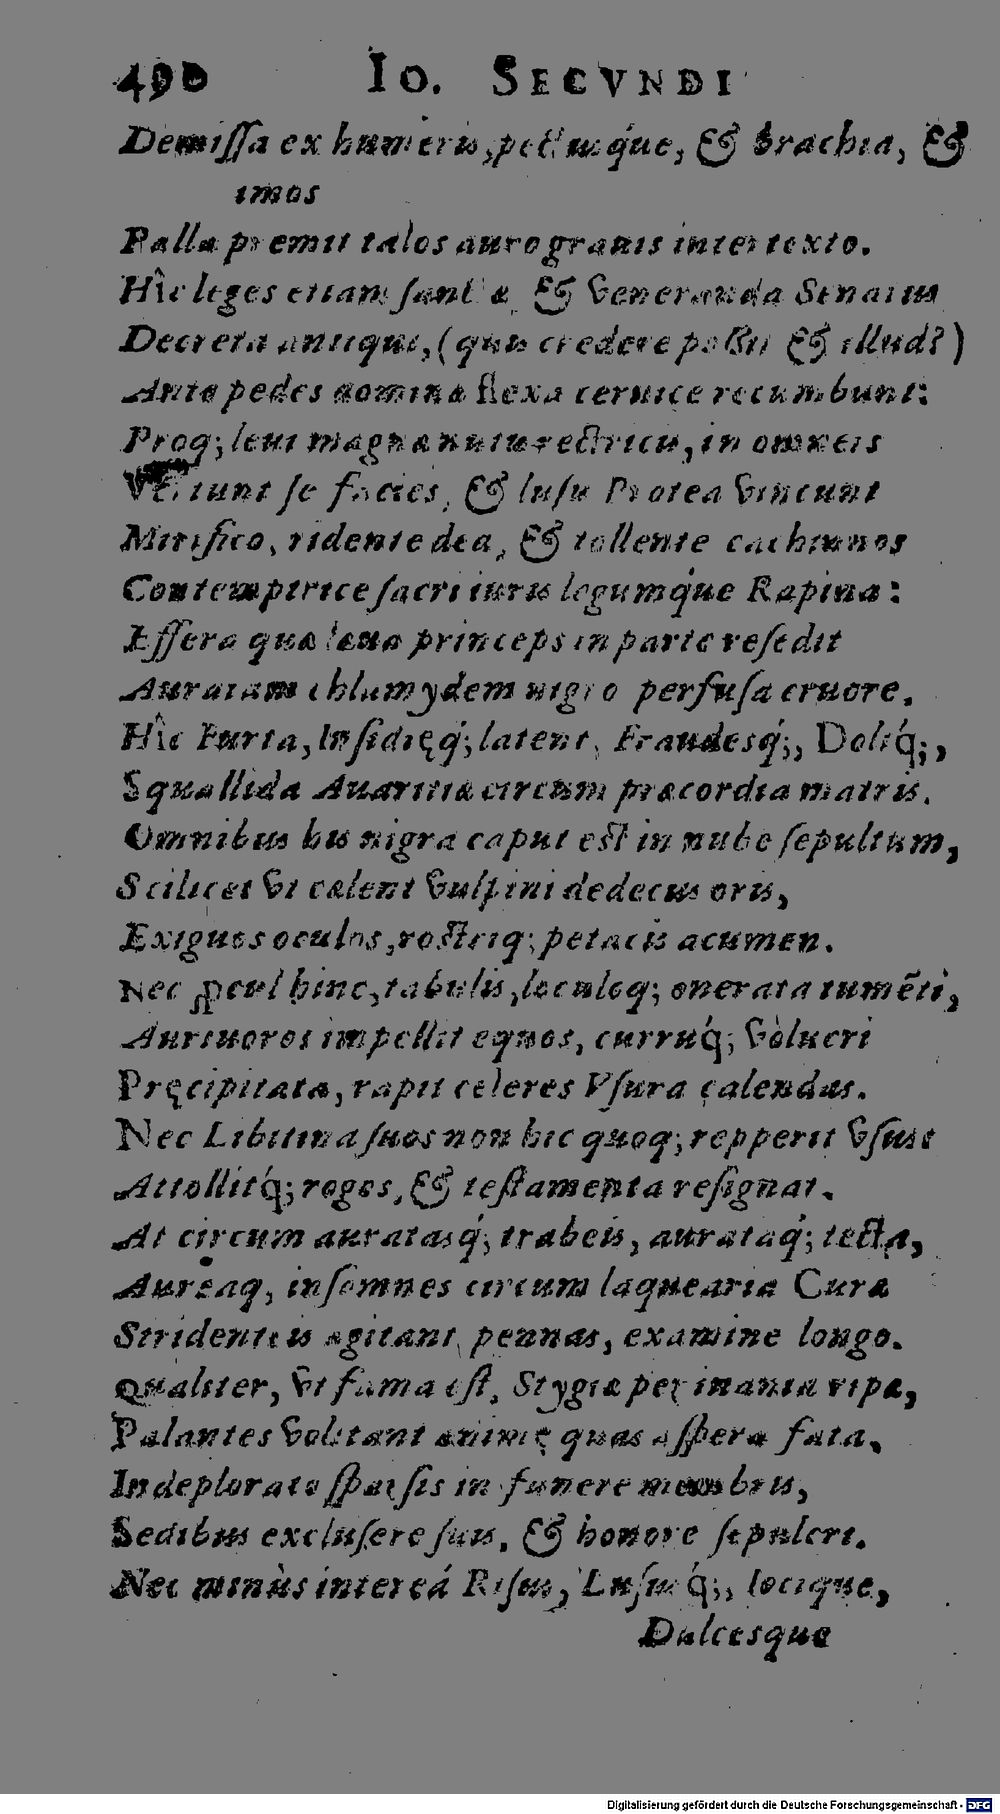 490 IO. SECVNDI
Demissa ex humeris, pectusque, & brachia, &
imos
Palla premit talos auro grauis intertexto.
Hîc leges etiam sanctæ, & veneranda Senatus
Decreta antiqui, (quis credere possit & illud?)
Ante pedes dominæ flexa ceruice recumbunt:
Proq; leui magnæ nutu rectricis, in omneis
Vertunt se facies, & lusu Protea vincunt
Mirifico, ridente dea, & tollente cachinnos
Contemptrice sacri iuris legumq́ue Rapina:
Effera quæ læua princeps in parte resedit
Auratam chlamydem nigro perfusa cruore.
Hîc Furta, Insidięq́; latent, Fraudesq́;, Doliq́;,
Squallida Auaritiæ circum præcordia matris.
Omnibus his nigra caput est in nube sepultum,
Scilicet vt celent vulpini dedecus oris,
Exiguos oculos, rostriq; petacis acumen.
Nec ꝓcul hinc, tabulis, loculoq; onerata tumẽti,
Auriuoros impellit equos, curruq́; volucri
Pręcipitata, rapit celeres Vsura calendas.
Nec Libitina suos non hic quoq; repperit vsus:
Attollitq́; rogos, & testamenta resignat.
At circum auratasq́; trabeis, aurataq́; tecta,
Aureaq, insomnes circum laquearia Curæ
Stridenteis agitant pennas, examine longo.
Qualiter, vt fama est, Stygiæ per inania ripæ,
Palantes volitant animę quas aspera fata,
Indeplorato sparsis in funere membris,
Sedibus exclusere suis, & honore sepulcri.
Nec minùs intereá Risus, Lususq́;, Iocique,
Dulcesque
Digitalisierung gefördert durch die Deutsche Forschungsgemeinschaft - DFG